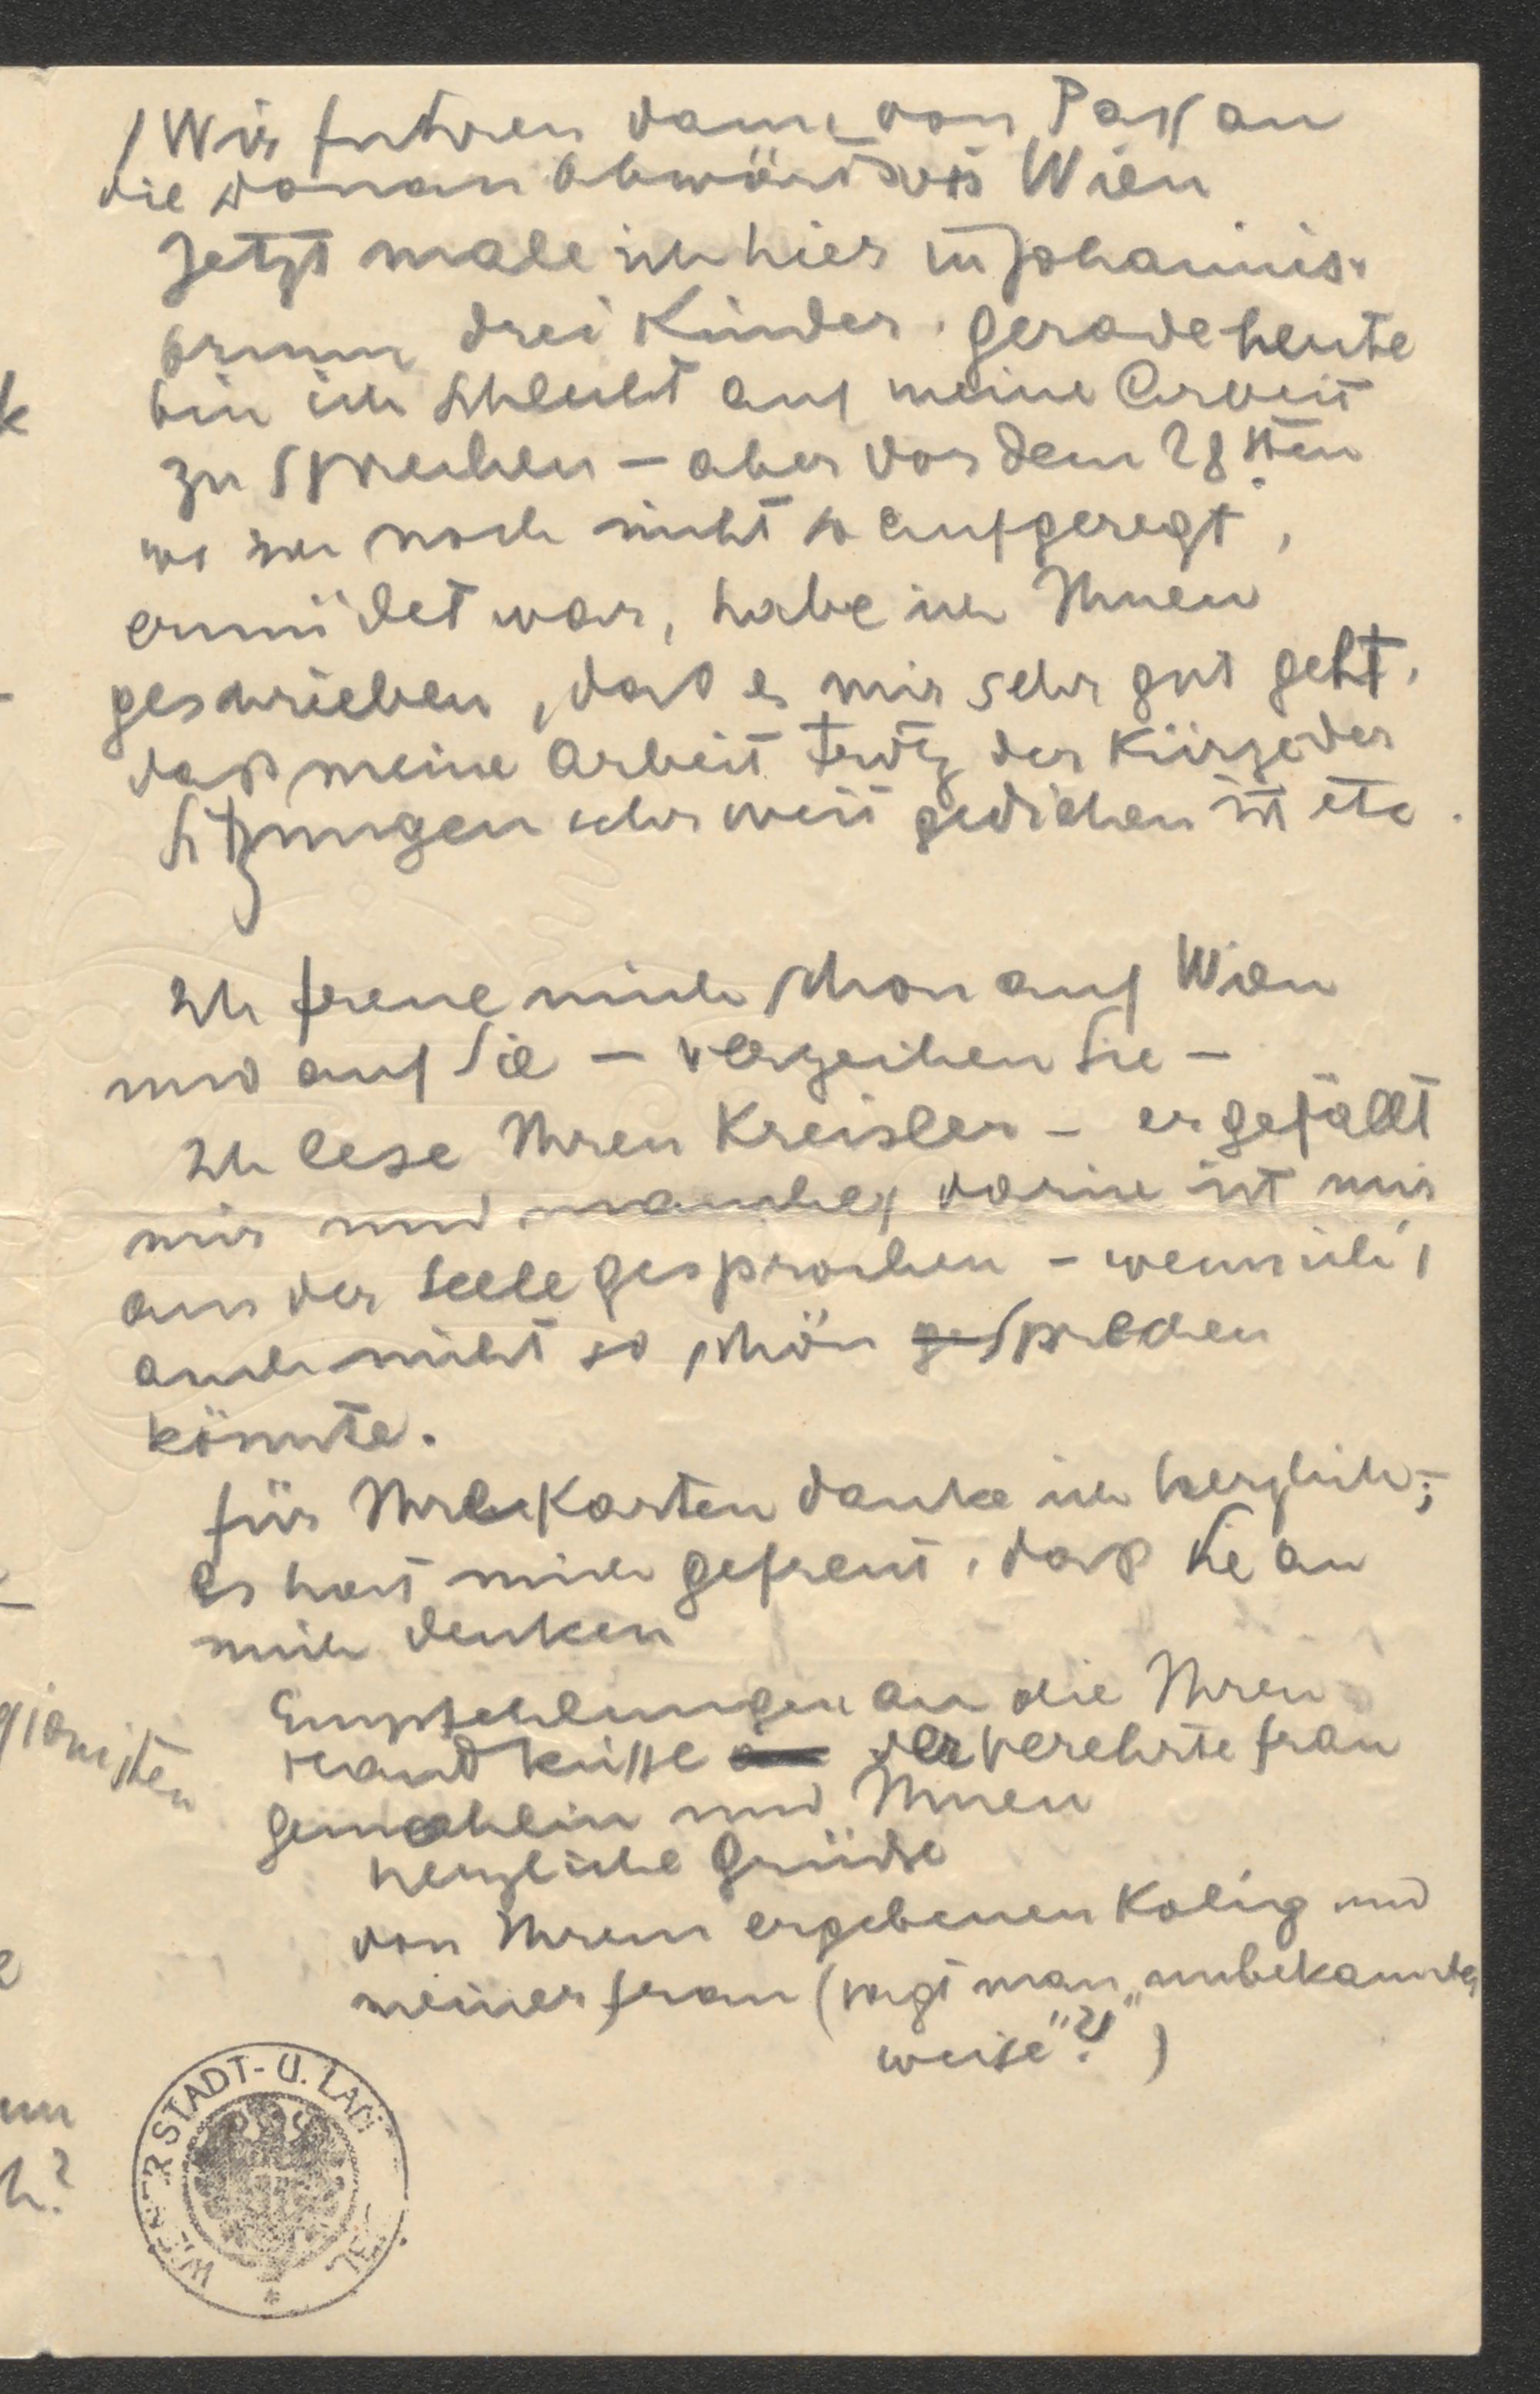 /Wir fuhren dann von Passau
die Donau abwärts bis Wien
Jetzt male ich hier in Johannis-
brunn drei Kinder. gerade heute
bin ich schlecht auf meine Arbeit
zu sprechen – aber vor dem 28sten
wo ich noch nicht so aufgeregt,
ermüdet war, habe ich Ihnen
geschrieben, dass es mir sehr gut geht,
daß meine Arbeit trotz der Kürze der
Sitzungen sehr weit gediehen ist etc.
Ich freue mich schon auf Wien
und auf Sie – verzeihen Sie –
Ich lese Ihren Kreisler – er gefällt
mir und manches darin ist mir
aus der Seele gesprochen – wenn ich's
auch nicht so schön ge sprechen
könnte.
für Ihre Karten danke ich herzlich;
es hat mich gefreut, daß Sie an
mich denken
Empfehlungen an die Ihren
Handküsse der verehrte Frau
Gemahlin und Ihnen
herzliche Grüsse
von Ihrem ergebenen Kolig und
meiner Frau (sagt man „unbekannter
weise"?)
WIENER STADT- U.